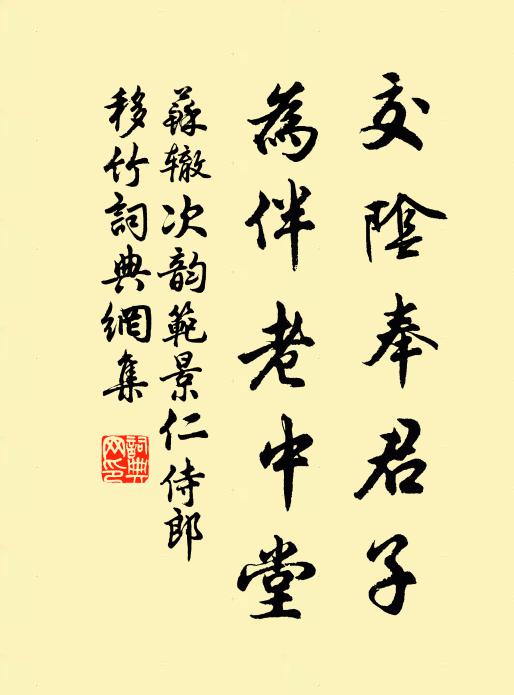 交陰奉君子
為伴老中堂
蘇辙次韵範景仁侍郎
移竹詞典網集
詞典网印